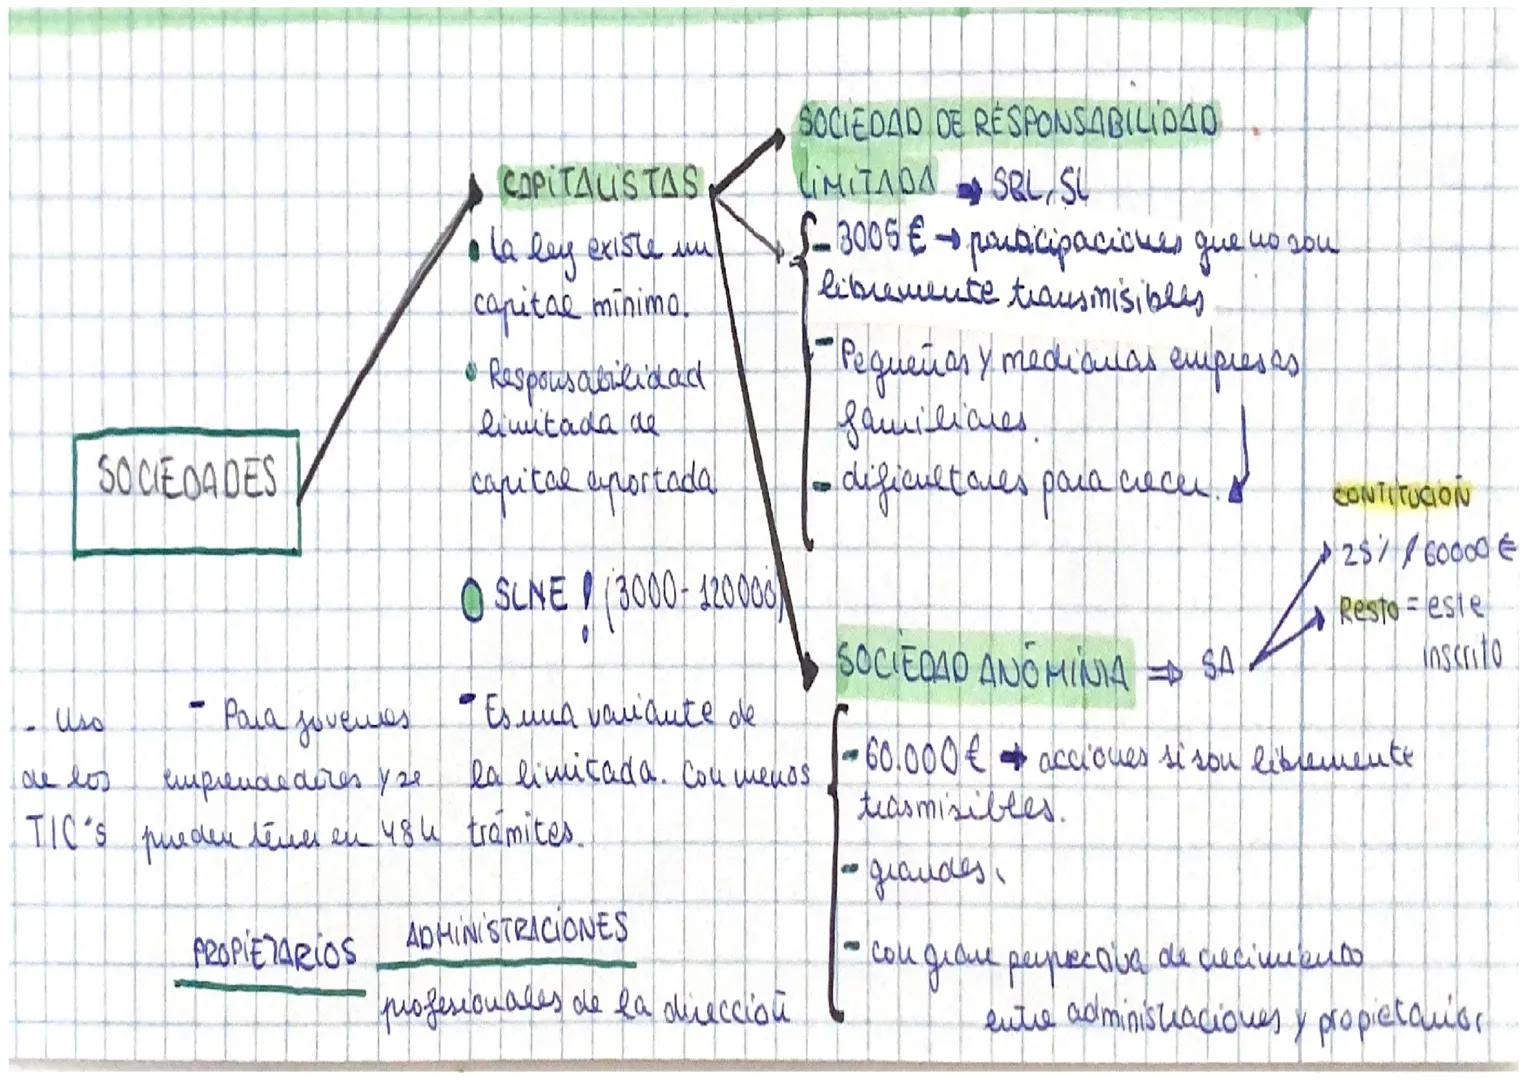 SOCIEDADES
CAPITALISTAS
• La ley existe un
capital mínimo.
• Responsabilidad
limitada de
capital aportada
SLNE ! (3000-120000)
- Es una variante de
la limitada. Con menos
trámites.
- Para jovenes
emprendedores y se
pueden tener en 48h
- Uso
de los
TIC's
PROPIETARIOS
ADMINISTRACIONES
profesionales de la dirección
SOCIEDAD DE RESPONSABILIDAD
LIMITADA → SRL, SL
- 3005 € → participaciones que no son
libremente transmisibles
- Pequeñas y medianas empresas
familiares.
- dificultades para crecer.
SOCIEDAD ANÓMINIA ⇒ SA
CONTITUCIÓN
25% / 60000 €
Resto = este
inscrito
- 60.000 € → acciones si son libremente
trasmisibles.
- grandes.
- con gran perpectiva de crecimiento
entre administraciones y propietarios